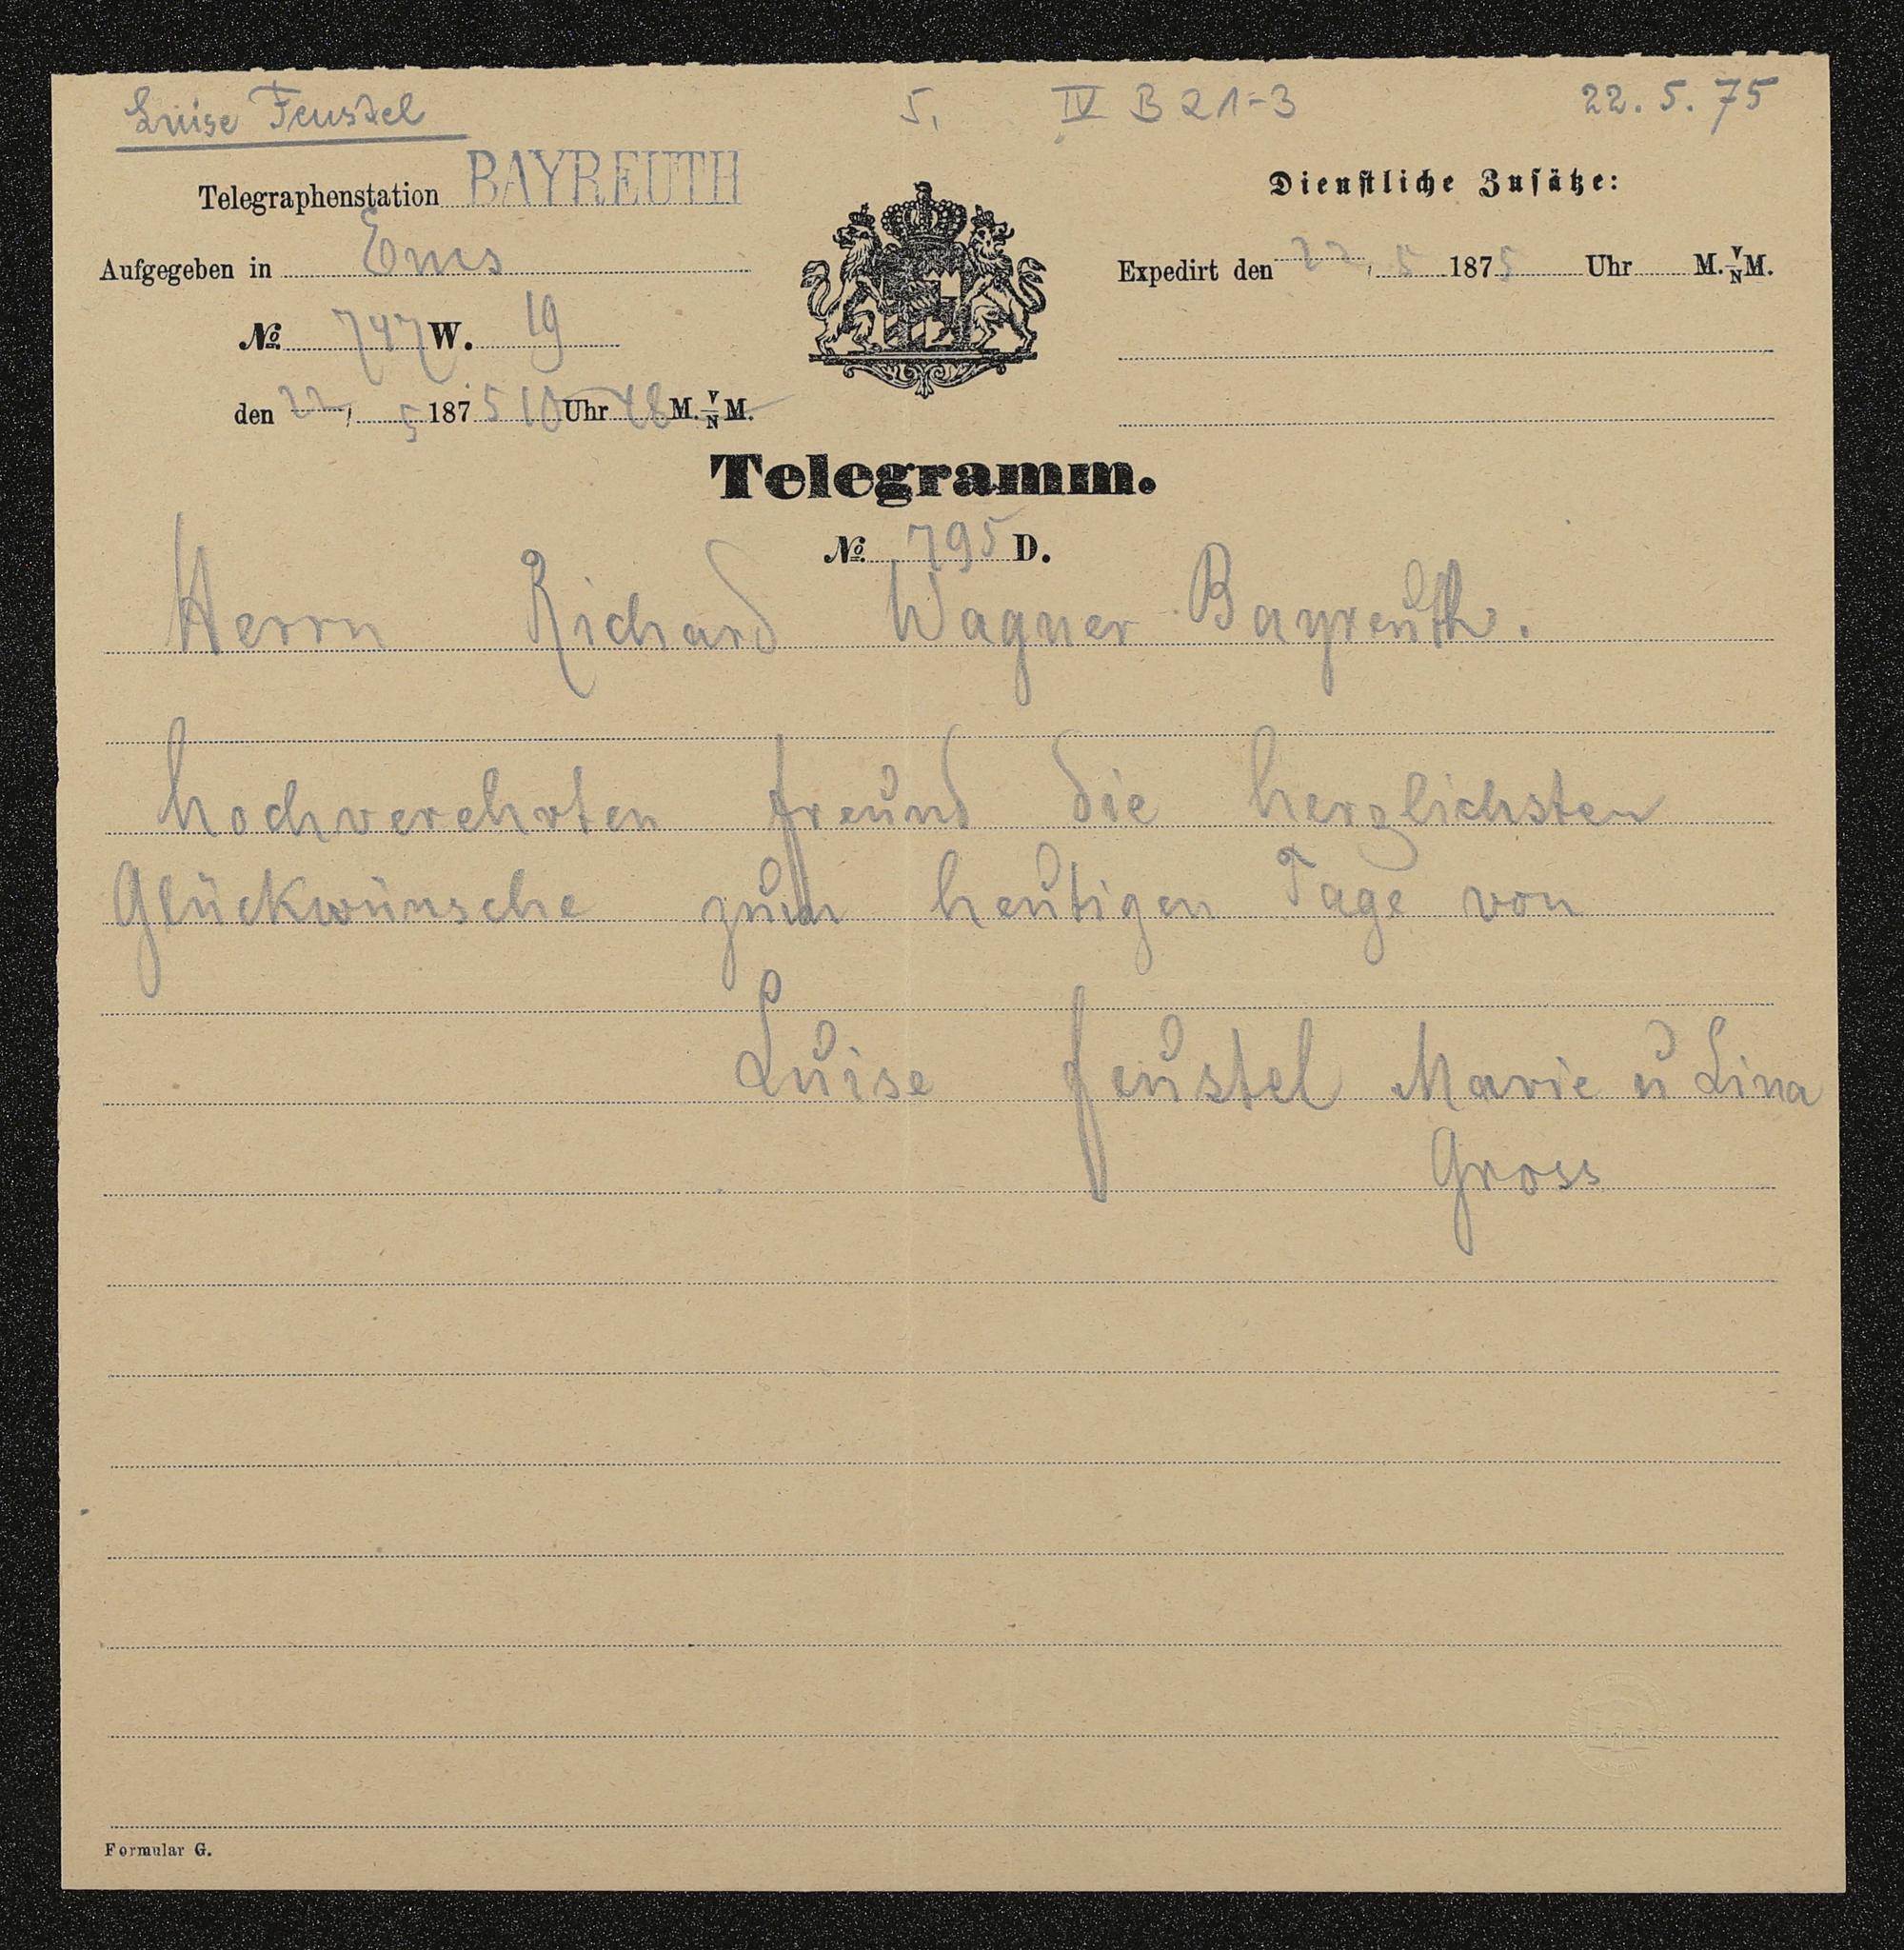 Luise Feustel 5. IV B 21-3 22. 5. 75
Telegraphenstation BAYREUTH
Dienstliche Zusätze:
Aufgegeben in Ems
Expedirt den 22, 5 1875 Uhr M. V/N M.
No 747 W. 19
den 22, 5 1875 10 Uhr 48 M. V/N M.
Telegramm.
No 795 D.
Herrn Richard Wagner Bayreuth.
hochverehrten freund die herzlichsten
Glückwünsche zum heutigen Tage von
Luise feustel Marie u Lina
Gross
Formular G.